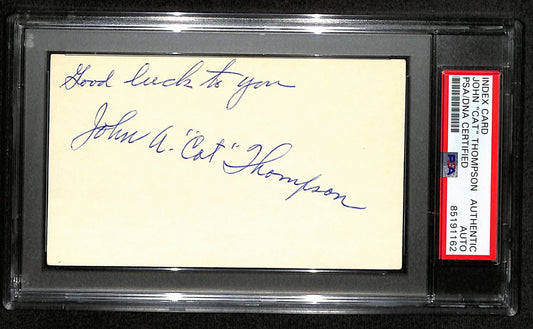 Good luck to you
John A. "Cat" Thompson
INDEX CARD
JOHN "CAT" THOMPSON AUTHENTIC
PSA/DNA CERTIFIED AUTO
85191162
PSA